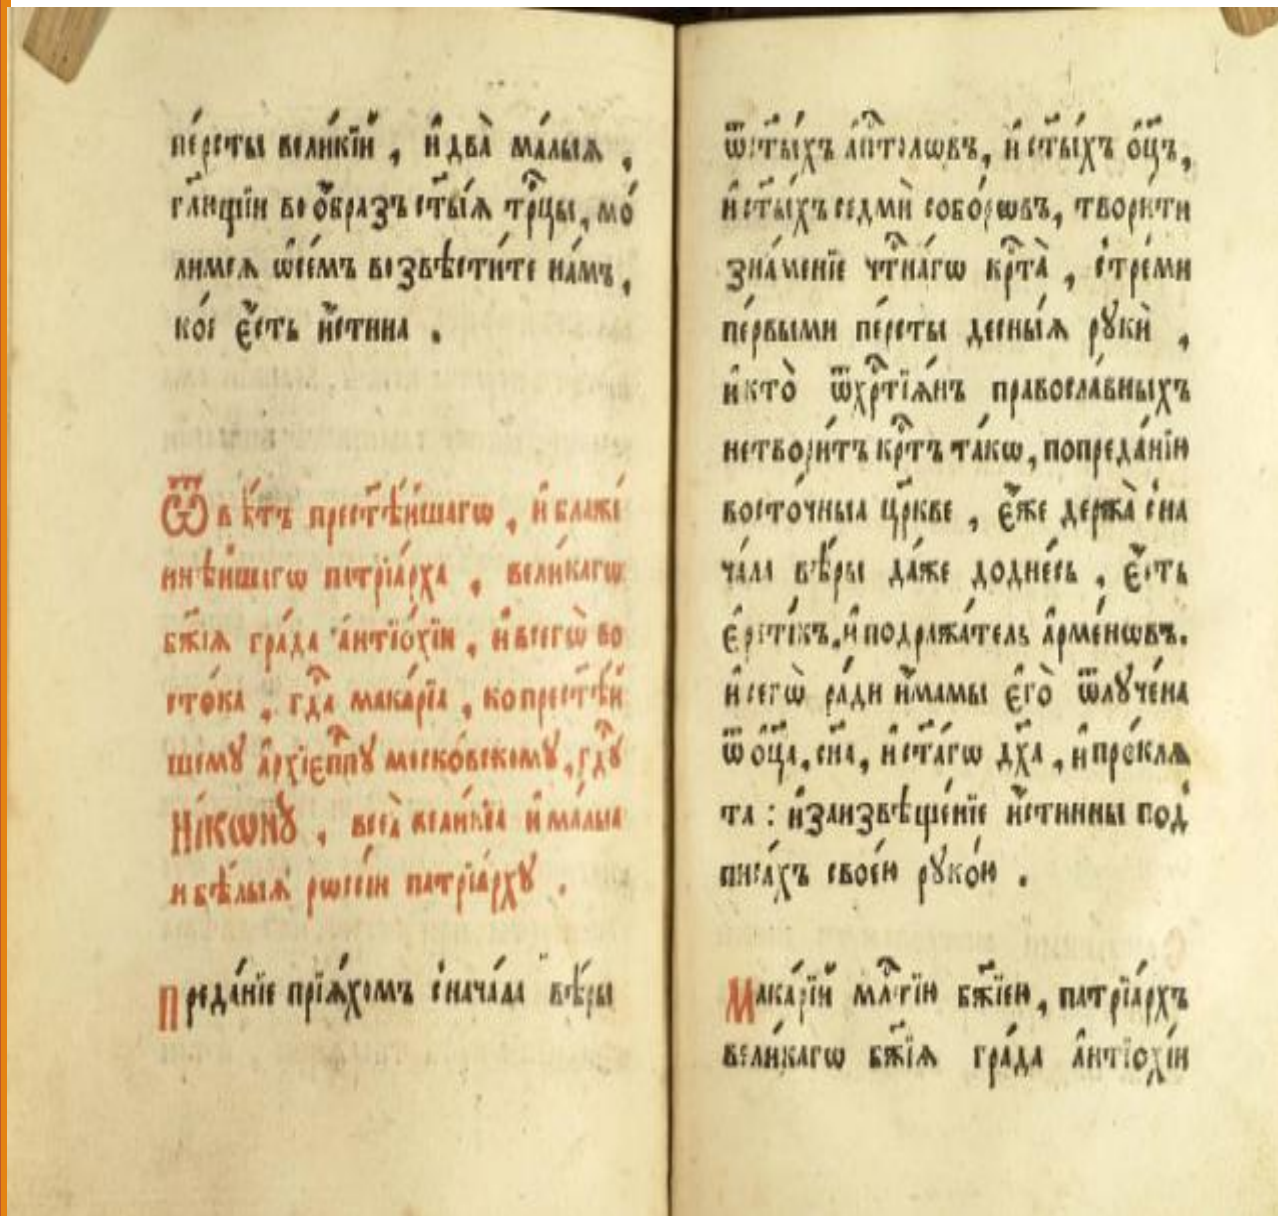 пе́рсты вели́кїй , и҆ два̀ ма́лыѧ ,
гл҃ющїи во ѻ҆́бразъ ст҃ы́ѧ трⷪ҇цы, мо́
лимсѧ ѡ҆се́мъ возвѣсти́те на́мъ,
ко́е є҆́сть и҆́стина .
Ѿвѣ́тъ прест҃ѣ́йшагѡ , и҆ блаже́
ннѣйшагѡ патрїа́рха , вели́кагѡ
бж҃їѧ гра́да а҆нтїо́хїи , и҆ всегѡ̀ во
сто́ка , гдⷭ҇а мака́рїа , ко прест҃ѣ́й
шемꙋ а҆рхїепⷭ҇пꙋ моско́вскомꙋ, гдⷭ҇ꙋ
Ні́кѡнꙋ , всеѧ̀ вели́кїа и҆ ма́лыа
и бѣ́лыѧ рѡссі́и патрїа́рхꙋ .
Преда́нїе прїѧ́хомъ с нача́ла вѣ́ры
ѿ ст҃ы́хъ а҆пⷭ҇толѡвъ, и҆ ст҃ы́хъ ѻ҆ц҃ъ,
и҆ ст҃ы́хъ седмѝ собо́рѡвъ, твори́ти
зна́менїе чⷭ҇тна́гѡ крⷭ҇та̀ , с треми́
пе́рвыми пе́рсты десны́ѧ рꙋкѝ ,
и҆ кто̀ ѿ хрⷭ҇тїѧ́нъ правосла́вныхъ
не твори́тъ крⷭ҇тъ та́кѡ, по преда́нїю
восто́чныа цр҃кве , є҆́же держа̀ с на
ча́ла вѣ́ры да́же до дне́сь , є҆́сть
є҆рети́къ, и҆ подража́тель а҆рме́нѡвъ.
и҆ сегѡ̀ ра́ди и҆́мамы є҆го̀ ѿлꙋче́на
ѿ ѻ҆ц҃а, сн҃а, и҆ ст҃а́гѡ дх҃а , и҆ про́клѧ
та : и҆ за и҆звѣще́нїе и҆́стинны под̾
писа́хъ свое́ю рꙋко́ю .
Мака́рїй млⷭ҇тїю бж҃їею, патрїа́рхъ
вели́кагѡ бж҃їѧ гра́да а҆нтїохі́и